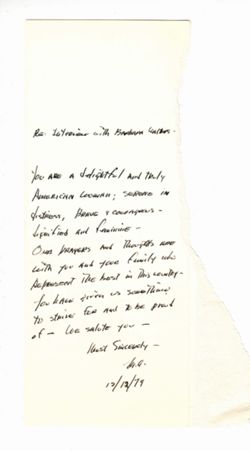 Re: Interview with Barbara Walters.
You are a delightful and truly
American woman; serene in
distress, brave & courageous -
dignified and feminine -
Our prayers and thoughts are
with you and your family who
represent the best in this country -
You have given us something
to strive for and to be proud
of - We salute you -
Most Sincerely -
12/12/79